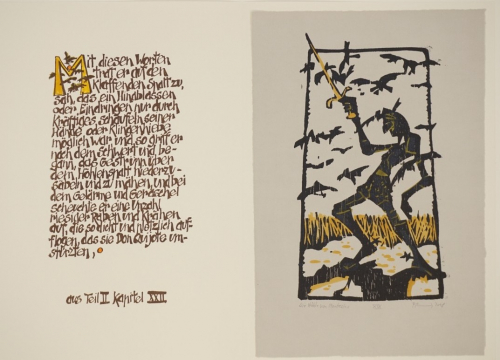 Mit diesen Worten
trat er auf den
Klaffenden Spalt zu,
sah, das ein Hinablassen
oder Eindringen nur durch
Kräftiges, schaufeln seiner
Hände oder Klingenhiebe
möglich war und so griff er
nach dem schwert und be-
gann, das Gestrüpp über
dem Höhlenspalt niederzu-
säbeln und zu mähen, und bei
dem Gelärme und Geraschel
scheuchte er eine Unzahl
riesiger Raben und Krähen
auf, die so dicht und plötzlich auf-
flogen, das sie Don Quijote um-
stürzten,
aus Teil II Kapitel XXII